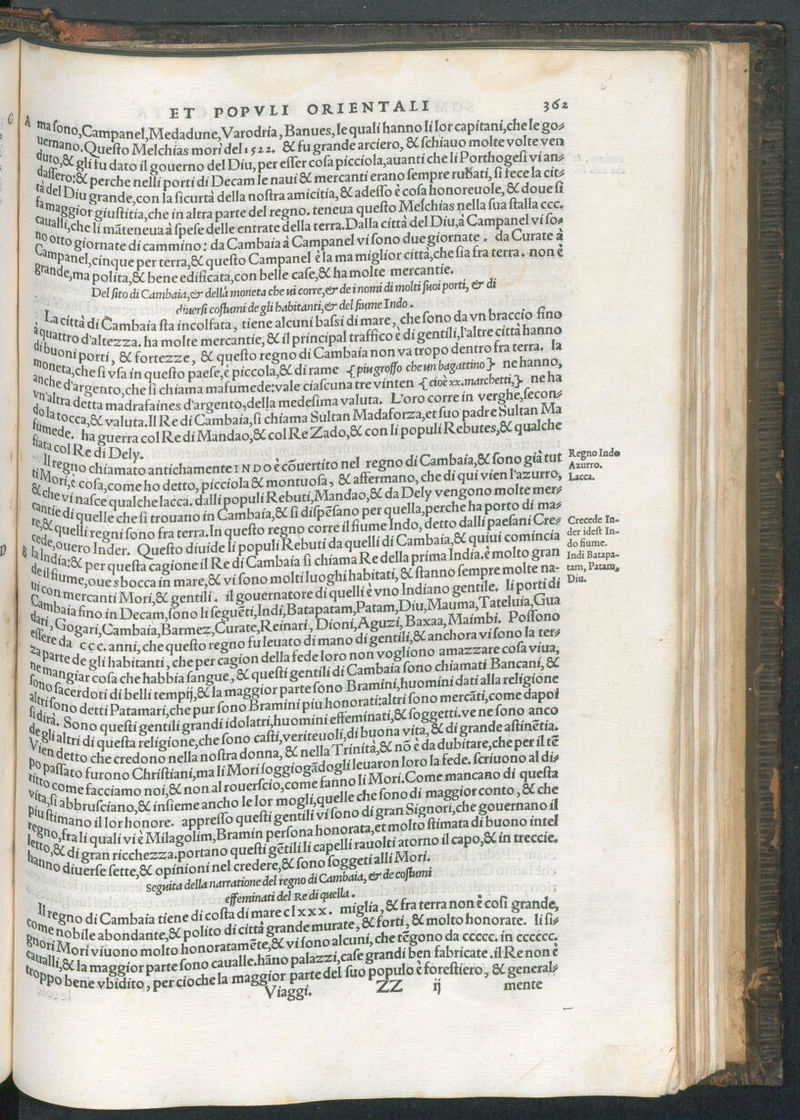 ET POPVLI ORIENTALI 362
A ma ſono,Campanel,Medadune,Varodria, Banues, le quali hanno li lor capitani,che le go⸗
uernano.Queſto Melchias mori del 1522. & fu grande arciero, & ſchiauo molte volte ven
duto,& gli fu dato il gouerno del Diu, per eſſer coſa picciola,auanti che li Porthogeſi vi an⸗
daſſero:& perche nelli porti di Decam le naui & mercanti erano ſempre rubati, ſi fece la cit⸗
tà del Diu grande,con la ſicurtà della noſtra amicitia,& adeſſo è coſa honoreuole, & doue ſi
fa maggior giuſtitia,che in altra parte del regno. teneua queſto Melchias nella ſua ſtalla ccc.
caualli,che li mãteneua à ſpeſe delle entrate della terra.Dalla città del Diu,à Campanel vi ſo⸗
no otto giornate di cammino: da Cambaia à Campanel vi ſono due giornate. da Curate à
Campanel,cinque per terra,& queſto Campanel è la ma miglior città,che ſia fra terra. non è
grande,ma polita,& bene edificata,con belle caſe,& ha molte mercantie.
Del ſito di Cambaia,& della moneta che ui corre,& de i nomi di molti ſuoi porti, & di
diuerſi coſtumi de gli habitanti,& del fiume Indo.
La città di Cambaia ſta incolfata, tiene alcuni baſsi di mare, che ſono da vn braccio fino
à quattro d'altezza. ha molte mercantie,& il principal traffico è di gentili,l'altre città hanno
di buoni porti, & fortezze, & queſto regno di Cambaia non va tropo dentro fra terra. la
moneta,che ſi vſa in queſto paeſe,è piccola,& di rame {piu groſſo che un bagattino} ne hanno,
anche d'argento,che ſi chiama mafumede:vale ciaſcuna tre vinten {cioè xx.marchetti,} ne ha
vn'altra detta madrafaines d'argento,della medeſima valuta. L'oro corre in verghe,ſecon⸗
do la tocca,& valuta.Il Re di Cambaia,ſi chiama Sultan Madaforza,et ſuo padre Sultan Ma
fumede. ha guerra col Re di Mandao,& col Re Zado,& con li populi Rebutes,& qualche
fiata col Re di Dely.
Il regno chiamato antichamente INDO è cõuertito nel regno di Cambaia,& ſono già tut
ti Mori,è coſa,come ho detto, picciola & montuoſa, & affermano, che di qui vien l'azurro,
& che vi naſce qualche lacca. dalli populi Rebuti,Mandao,& da Dely vengono molte mer⸗
cantie di quelle che ſi trouano in Cambaia,& ſi diſpẽſano per quella,perche ha porto di ma⸗
re,& quelli regni ſono fra terra.In queſto regno corre il fiume Indo, detto dalli paeſani Cre⸗
cede,ouero Inder. Queſto diuide li populi Rebuti da quelli di Cambaia,& quiui comincia
B la India:& per queſta cagione il Re di Cambaia ſi chiama Re della prima India.è molto gran
de il fiume,oue sbocca in mare,& vi ſono molti luoghi habitati, & ſtanno ſempre molte na⸗
ui con mercanti Mori,& gentili. il gouernatore di quelli è vno Indiano gentile. li porti di
Cambaia fino in Decam,ſono li ſeguẽti,Indi,Batapatam,Patam,Diu,Mauma,Tateluia,Gua
dari, Gogari,Cambaia,Barmez,Curate,Reinari, Dioni,Aguzi, Baxaa, Maimbi. Poſſono
eſſere da ccc. anni, che queſto regno fu leuato di mano di gentili,& anchora vi ſono la ter⸗
za parte de gli habitanti, che per cagion della fede loro non vogliono amazzare coſa viua,
ne mangiar coſa che habbia ſangue, & queſti gentili di Cambaia ſono chiamati Bancani, &
ſono ſacerdoti di belli tempij,& la maggior parte ſono Bramini,huomini dati alla religione
altri ſono detti Patamari,che pur ſono Bramini piu honorati:altri ſono mercãti,come dapoi
ſi dirà. Sono queſti gentili grandi idolatri,huomini effeminati,& ſoggetti.ve ne ſono anco
de gli altri di queſta religione,che ſono caſti,veriteuoli,di buona vita, & di grande aſtinẽtia.
Vien detto che credono nella noſtra donna, & nella Trinità,& nõ è da dubitare,che per il tẽ
po paſſato furono Chriſtiani,ma li Mori ſoggiogãdogli leuaron loro la fede. ſcriuono al di⸗
ritto come facciamo noi,& non al roueſcio,come fanno li Mori.Come mancano di queſta
vita,ſi abbruſciano,& inſieme ancho le lor mogli,quelle che ſono di maggior conto, & che
piu ſtimano il lor honore. appreſſo queſti gentili vi ſono di gran Signori,che gouernano il
regno,fra li quali vi è Milagolim,Bramin perſona honorata,et molto ſtimata di buono intel
letto,& di gran ricchezza.portano queſti gẽtili li capelli rauolti atorno il capo,& in treccie.
hanno diuerſe ſette,& opinioni nel credere,& ſono ſoggeti alli Mori.
Seguita della narratione del regno di Cambaia, & de coſtumi
effeminati del Re di quella.
Il regno di Cambaia tiene di coſta di mare clxxx. miglia, & fra terra non è coſi grande,
come nobile abondante,& polito di città grande murate, & forti, & molto honorate. li ſi⸗
gnori Mori viuono molto honoratamẽte,& vi ſono alcuni, che tẽgono da ccccc. in cccccc.
caualli,& la maggior parte ſono caualle.hãno palazzi,caſe grandi ben fabricate.il Re non è
troppo bene vbidito, per cioche la maggior parte del ſuo populo è foreſtiero, & general⸗
Viaggi. ZZ ij mente
Regno Indo
Azurro.
Lacca.
Crecede In-
der ideſt In-
do fiume.
Indi Batapa-
tam, Patam,
Diu.